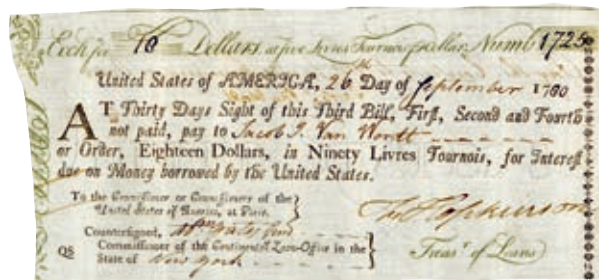 Exch. for 18 Dollars, at five Livres Tournois pr dollar, Numb. 1725
United States of AMERICA, 26th Day of September 1780
AT Thirty Days Sight of this Third Bill, First, Second and Fourth
not paid, pay to Jacob J. Van
or Order, Eighteen Dollars, in Ninety Livres Tournois, for Interest
due on Money borrowed by the United States.
To the Commissioner or Commissioners of the
United States of America, at Paris.
Countersigned,
Commissioner of the Continental Loan-Office in the
State of New York
Treasr. of Loans